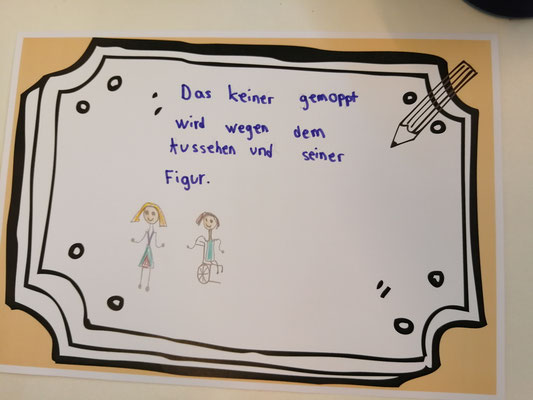 Das keiner gemoppt
wird wegen dem
Aussehen und seiner
Figur.